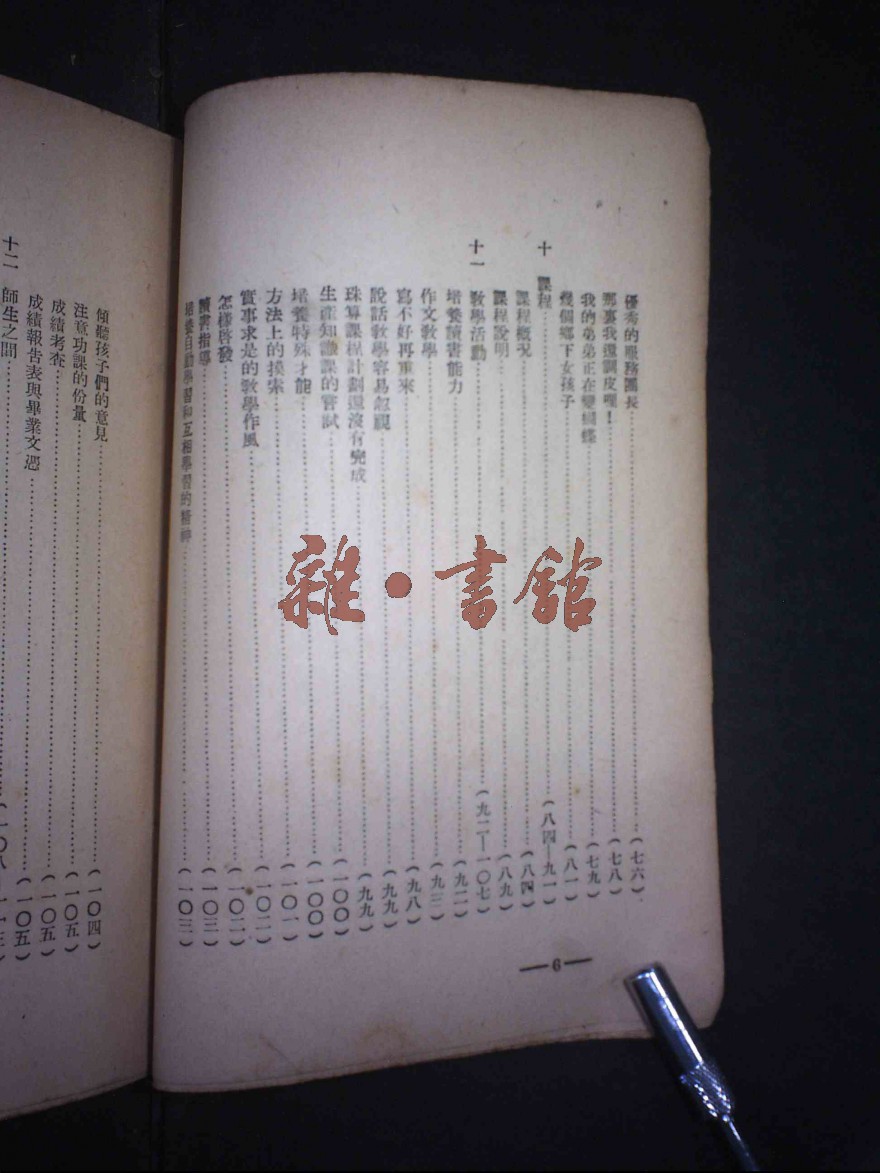 優秀的服務團長……(七六)
那事我還調皮喱!……(七八)
我的弟弟正在變蝴蝶……(七九)
幾個鄉下女孩子……(八一)
十 課程……(八四—九一)
課程概况……(八四)
課程說明……(八九)
十一 敎學活動……(九二—一〇七)
培養讀書能力……(九二)
作文敎學……(九三)
寫不好再重來……(九八)
說話敎學容易忽視……(九九)
珠算課程計劃還沒有完成……(九九)
生產知識課的嘗試……(一〇〇)
培養特殊才能……(一〇〇)
方法上的摸索……(一〇一)
實事求是的敎學作風……(一〇二)
怎樣啓發……(一〇二)
讀書指導……(一〇三)
培養自動學習和互相學習的精神……(一〇三)
—6—
傾聽孩子們的意見……(一〇四)
注意功課的份量……(一〇五)
成績考查……(一〇五)
成績報告表與畢業文憑……(一〇五)
十二 師生之間……(一〇八—一一三
雜·書館